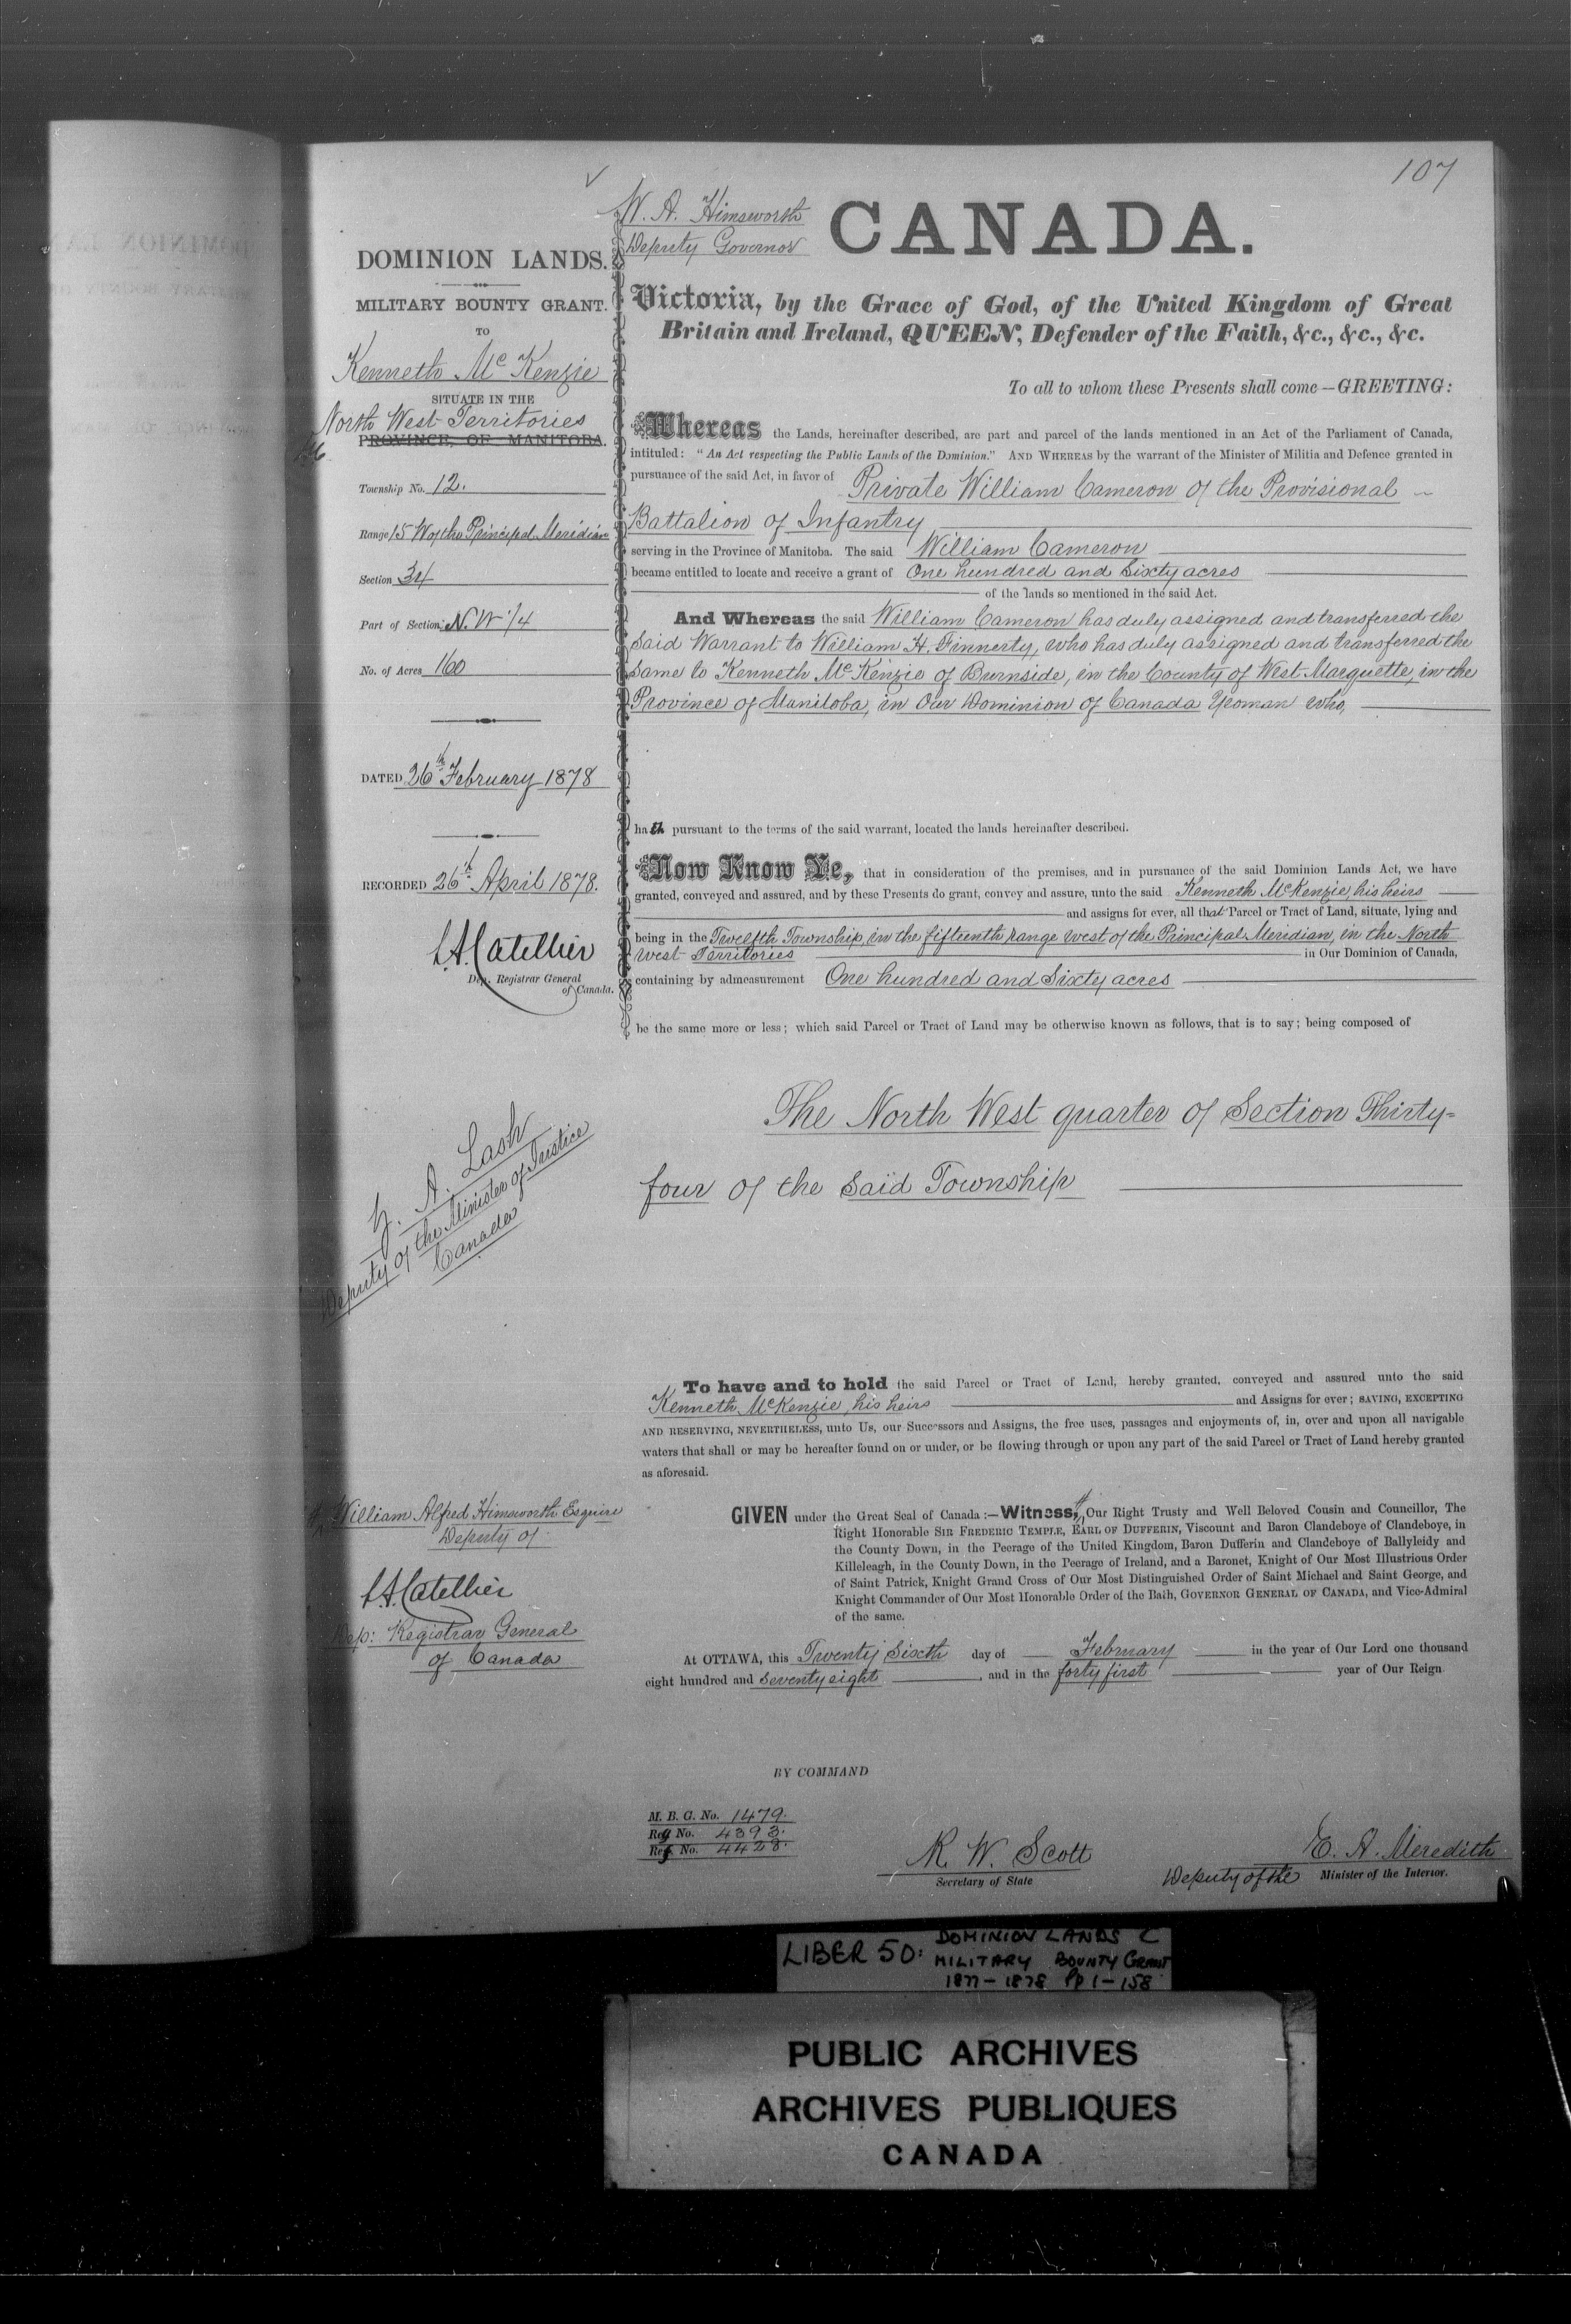 107
W. A. Himsworth
Deputy Governor
CANADA.
DOMINION LANDS.
MILITARY BOUNTY GRANT.
TO
Kenneth McKenzie
SITUATE IN THE
North West Territories
PROVINCE, OF MANITOBA.
Township No. 12.
Range 15 W of the Principal Meridian
Section 34
Part of Section: N.W 1/4
No. of Acres 160
DATED 26th February 1878
RECORDED 26th April 1878.
L.A. Catellier
Dep. Registrar General
of Canada.
Z. A. Lash
Deputy of the Minister of Justice
Canada
William Alfred Himsworth Esquire
Deputy of
L.A. Catellier
Dep: Registrar General
of Canada
Victoria, by the Grace of God, of the United Kingdom of Great
Britain and Ireland, QUEEN, Defender of the Faith, &c., &c., &c.
To all to whom these Presents shall come—GREETING:
Whereas the Lands, hereinafter described, are part and parcel of the lands mentioned in an Act of the Parliament of Canada,
intituled: "An Act respecting the Public Lands of the Dominion." AND WHEREAS by the warrant of the Minister of Militia and Defence granted in
pursuance of the said Act, in favor of Private William Cameron of the Provisional
Battalion of Infantry
serving in the Province of Manitoba. The said William Cameron
became entitled to locate and receive a grant of One hundred and Sixty acres
of the lands so mentioned in the said Act.
And Whereas the said William Cameron has duly assigned and transferred the
said Warrant to William H. Finnerty, who has duly assigned and transferred the
same to Kenneth McKenzie of Burnside, in the County of West Marquette, in the
Province of Manitoba, in Our Dominion of Canada Yeoman who,
hath pursuant to the terms of the said warrant, located the lands hereinafter described.
Now Know Ye, that in consideration of the premises, and in pursuance of the said Dominion Lands Act, we have
granted, conveyed and assured, and by these Presents do grant, convey and assure, unto the said Kenneth McKenzie, his heirs
and assigns for ever, all that Parcel or Tract of Land, situate, lying and
being in the Twelfth Township, in the fifteenth range west of the Principal Meridian, in the North
West Territories in Our Dominion of Canada,
containing by admeasurement One hundred and Sixty acres
be the same more or less; which said Parcel or Tract of Land may be otherwise known as follows, that is to say; being composed of
The North West quarter of Section Thirty-
four of the said Township
To have and to hold the said Parcel or Tract of Land, hereby granted, conveyed and assured unto the said
Kenneth McKenzie, his heirs and Assigns for ever; SAVING, EXCEPTING
AND RESERVING, NEVERTHELESS, unto Us, our Successors and Assigns, the free uses, passages and enjoyments of, in, over and upon all navigable
waters that shall or may be hereafter found on or under, or be flowing through or upon any part of the said Parcel or Tract of Land hereby granted
as aforesaid.
GIVEN under the Great Seal of Canada:—Witness, Our Right Trusty and Well Beloved Cousin and Councillor, The
Right Honorable SIR FREDERIC TEMPLE, EARL OF DUFFERIN, Viscount and Baron Clandeboye of Clandeboye, in
the County Down, in the Peerage of the United Kingdom, Baron Dufferin and Clandeboye of Ballyleidy and
Killeleagh, in the County Down, in the Peerage of Ireland, and a Baronet, Knight of Our Most Illustrious Order
of Saint Patrick, Knight Grand Cross of Our Most Distinguished Order of Saint Michael and Saint George, and
Knight Commander of Our Most Honorable Order of the Bath, GOVERNOR GENERAL OF CANADA, and Vice-Admiral
of the same.
At OTTAWA, this Twenty Sixth day of February in the year of Our Lord one thousand
eight hundred and seventy eight, and in the forty first year of Our Reign
BY COMMAND
M. B. G. No. 1479.
Reg No. 4393.
Ref. No. 4428.
R. W. Scott
Secretary of State
E. A. Meredith
Deputy of the Minister of the Interior.
LIBER 50: DOMINION LANDS C
MILITARY BOUNTY GRANT
1877-1878 Pp 1-158
PUBLIC ARCHIVES
ARCHIVES PUBLIQUES
CANADA